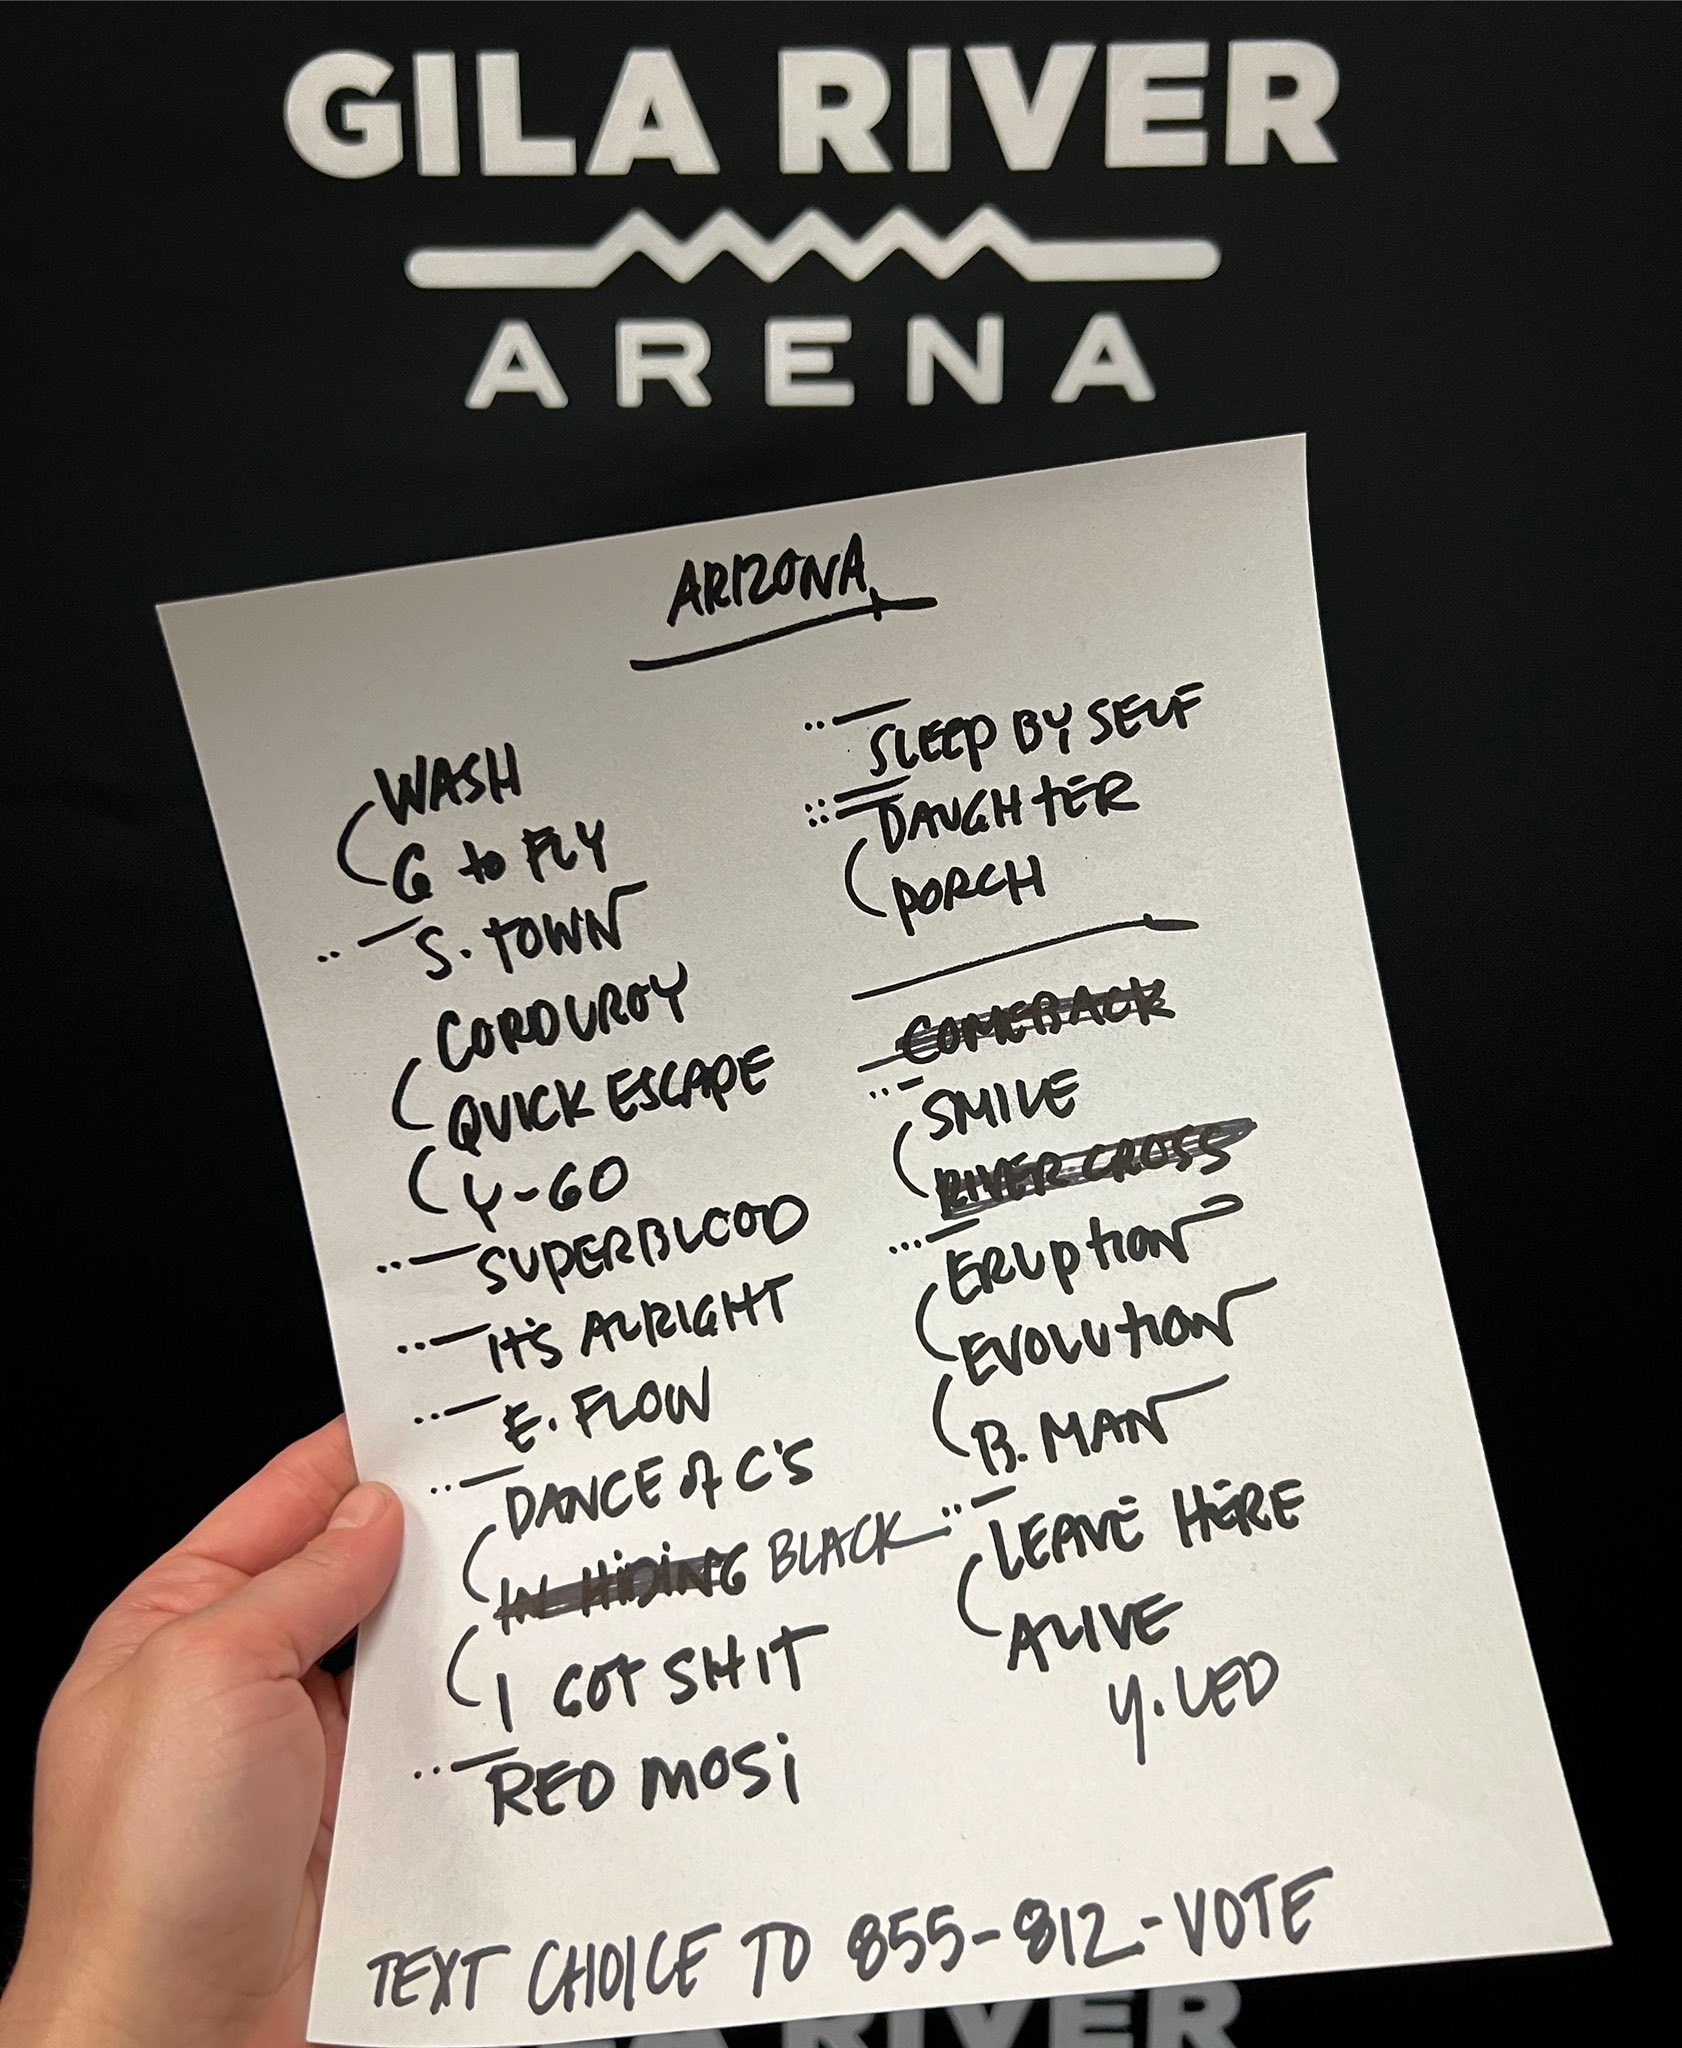 GILA RIVER
ARENA
ARIZONA
WASH
G to FLY
S. TOWN
CORDUROY
QUICK ESCAPE
Y-GO
SUPERBLOOD
It's ALRIGHT
E. FLOW
DANCE of C'S
IN HiDiNG BLACK
I GOT SHIT
RED MOSi
SLEEP BY SELF
DAUGHTER
PORCH
COMEBACK
SMILE
RIVER CROSS
ERUPtION
EVOLUtION
B. MAN
LEAVE HERE
ALIVE
Y. LED
TEXT CHOICE TO 855-812-VOTE
RIVER